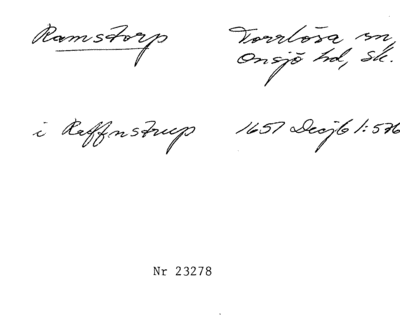 Ramstorp Torrlösa sn,
Onsjö hd, Sk.
i Raffnstrup 1657 Decjb 1:576
Nr 23278